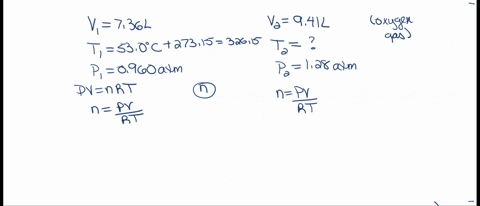 V₁ = 7.36L
V₂ = 9.41L
(oxygen gas)
T₁ = 53.0°C + 273.15 = 326.15
T₂ = ?
P₁ = 0.960atm
P₂ = 1.28atm
PV = nRT
n
n = PV/RT
n = PV/RT